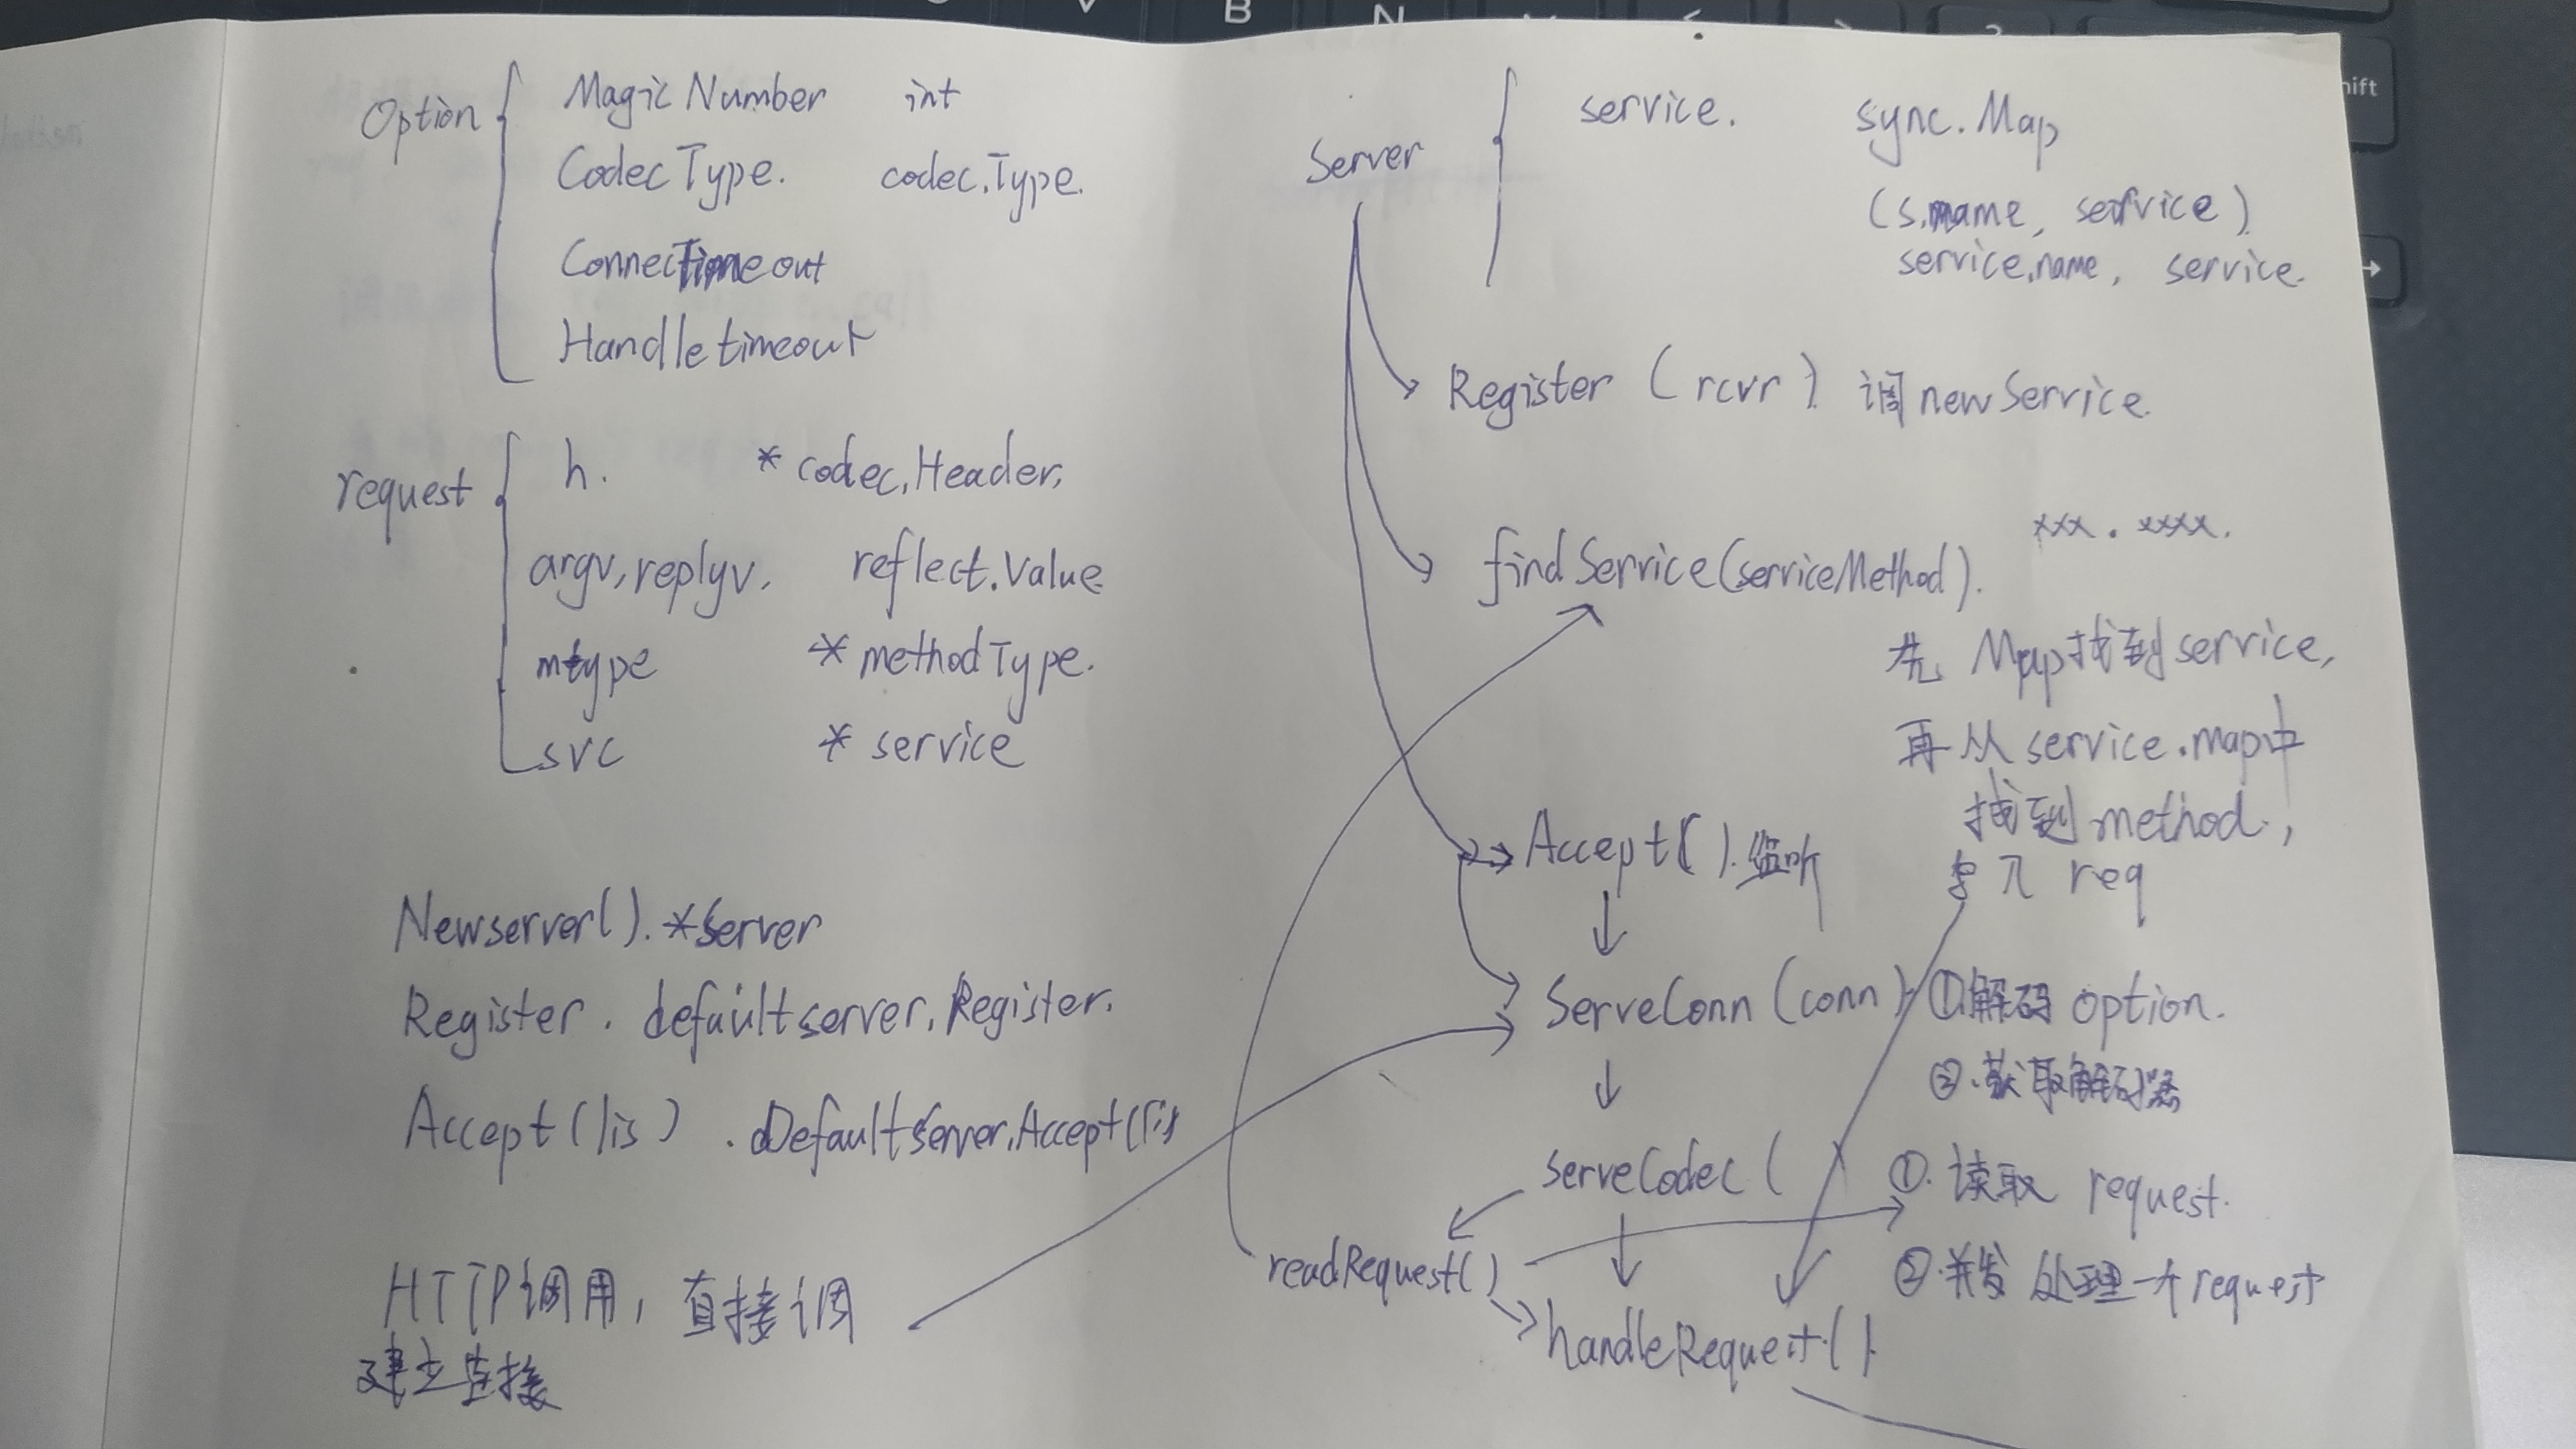 Option { Magic Number int
CodecType. codec.Type.
ConnecTimeout
Handle timeout
request { h. * codec.Header.
argv, replyv. reflect.Value
mtype * methodType.
svc * service
Newserver(). *Server
Register. defaultserver.Register.
Accept(lis). Defaultserver.Accept(lis
HTTP调用, 直接调
建立连接
Server { service. sync.Map
(s.name, service)
service.name, service.
Register (rcvr) 调newService.
findService(serviceMethod). xxx.xxxx.
先 Map找到service,
再从service.map中
找到method,
写入req
Accept().监听
↓
ServeConn (conn) ①解码option.
↓ ②.获取解码器
serveCodec( ①.读取 request.
readRequest() ↓ ②.并发处理一个request
handleRequest().